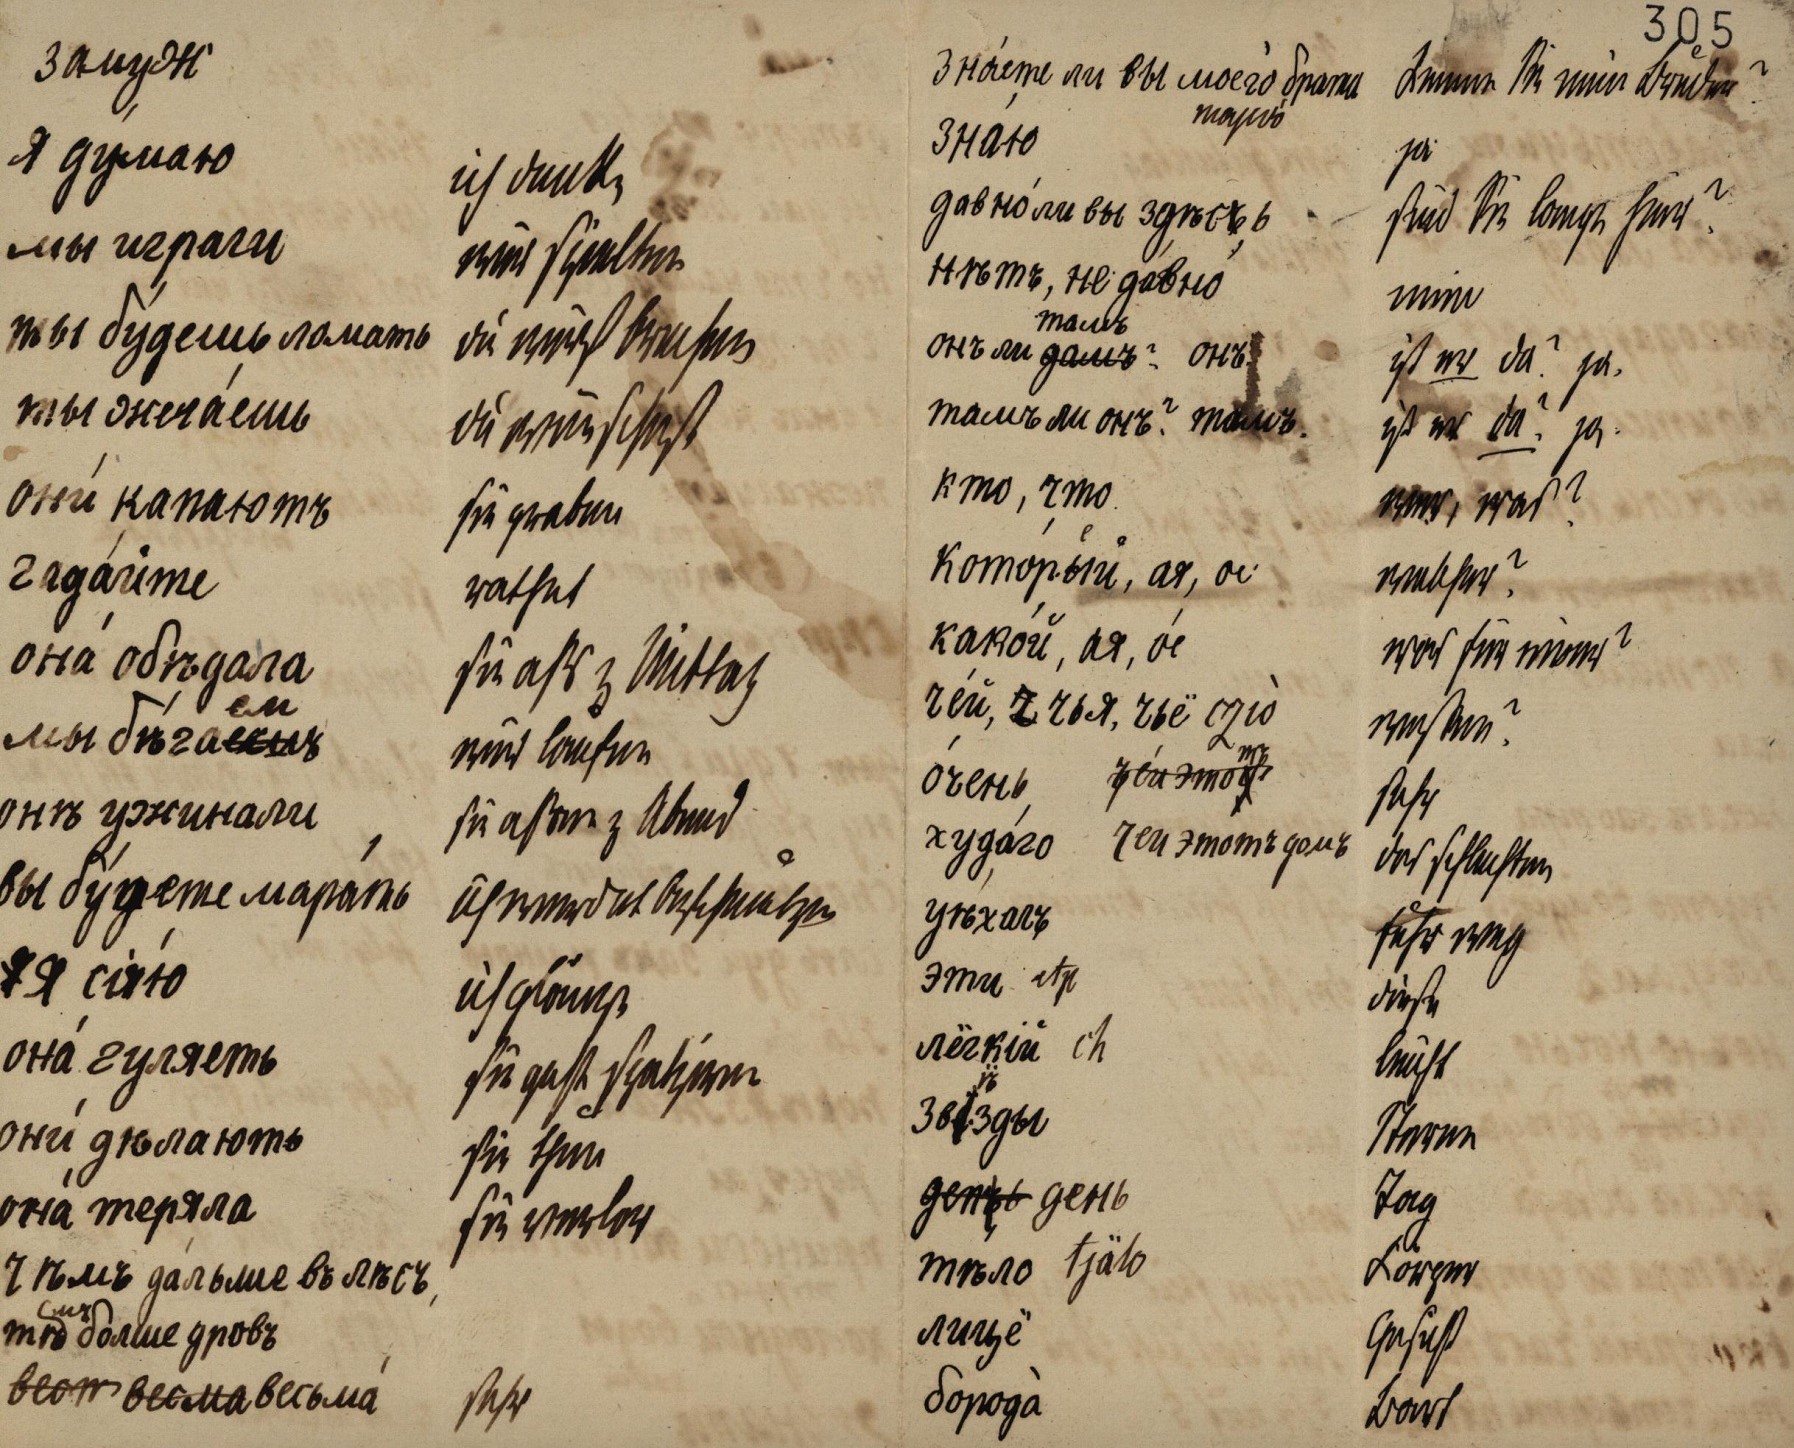 305
замуж
я ду́маю ich denke
мы играли wir spielten
ты бу́дешь ломать du wirst brechen
ты жела́ешь du wünschest
они́ капаютъ sie graben
гада́йте rathet
она́ обѣдала sie aß z Mittag
ем
мы бѣ́гаемъ wir laufen
онѣ ужинали sie aßen z Abend
вы бу́дете мара́ть ihr werdet beschmutzen
я сія́ю ich glänze
она́ гуляеть sie geht spatziren
они́ дѣлають sie thun
она́ теряла sie verlor
чѣмъ да́льше въ лѣсъ,
тѣмъ болше дровъ
весма весьма́ sehr
зна́ете ли вы моего́ брата Kennen Sie mein Bruder?
зна́ю ja
давно́ ли вы здѣсь sind Sie lange hier?
нѣтъ, не давно́ nein
тамъ
онъ ли дамъ? онъ. ist er da? ja.
тамъ ли онъ? тамъ. ist er da? ja.
кто, что wer, was?
кото́рый, ая, ое welcher?
како́й, ая, о́е was für einer?
че́й, чья, чьё wessen?
о́чень чей этотъ sehr
худа́го чей этотъ домъ des schlechten
уѣхалъ fuhr weg
эти diese
лёгкій ch leicht
звѣзды Sterne
день Tag
тѣло tjälo Körper
лицё Gesicht
борода̀ Bart